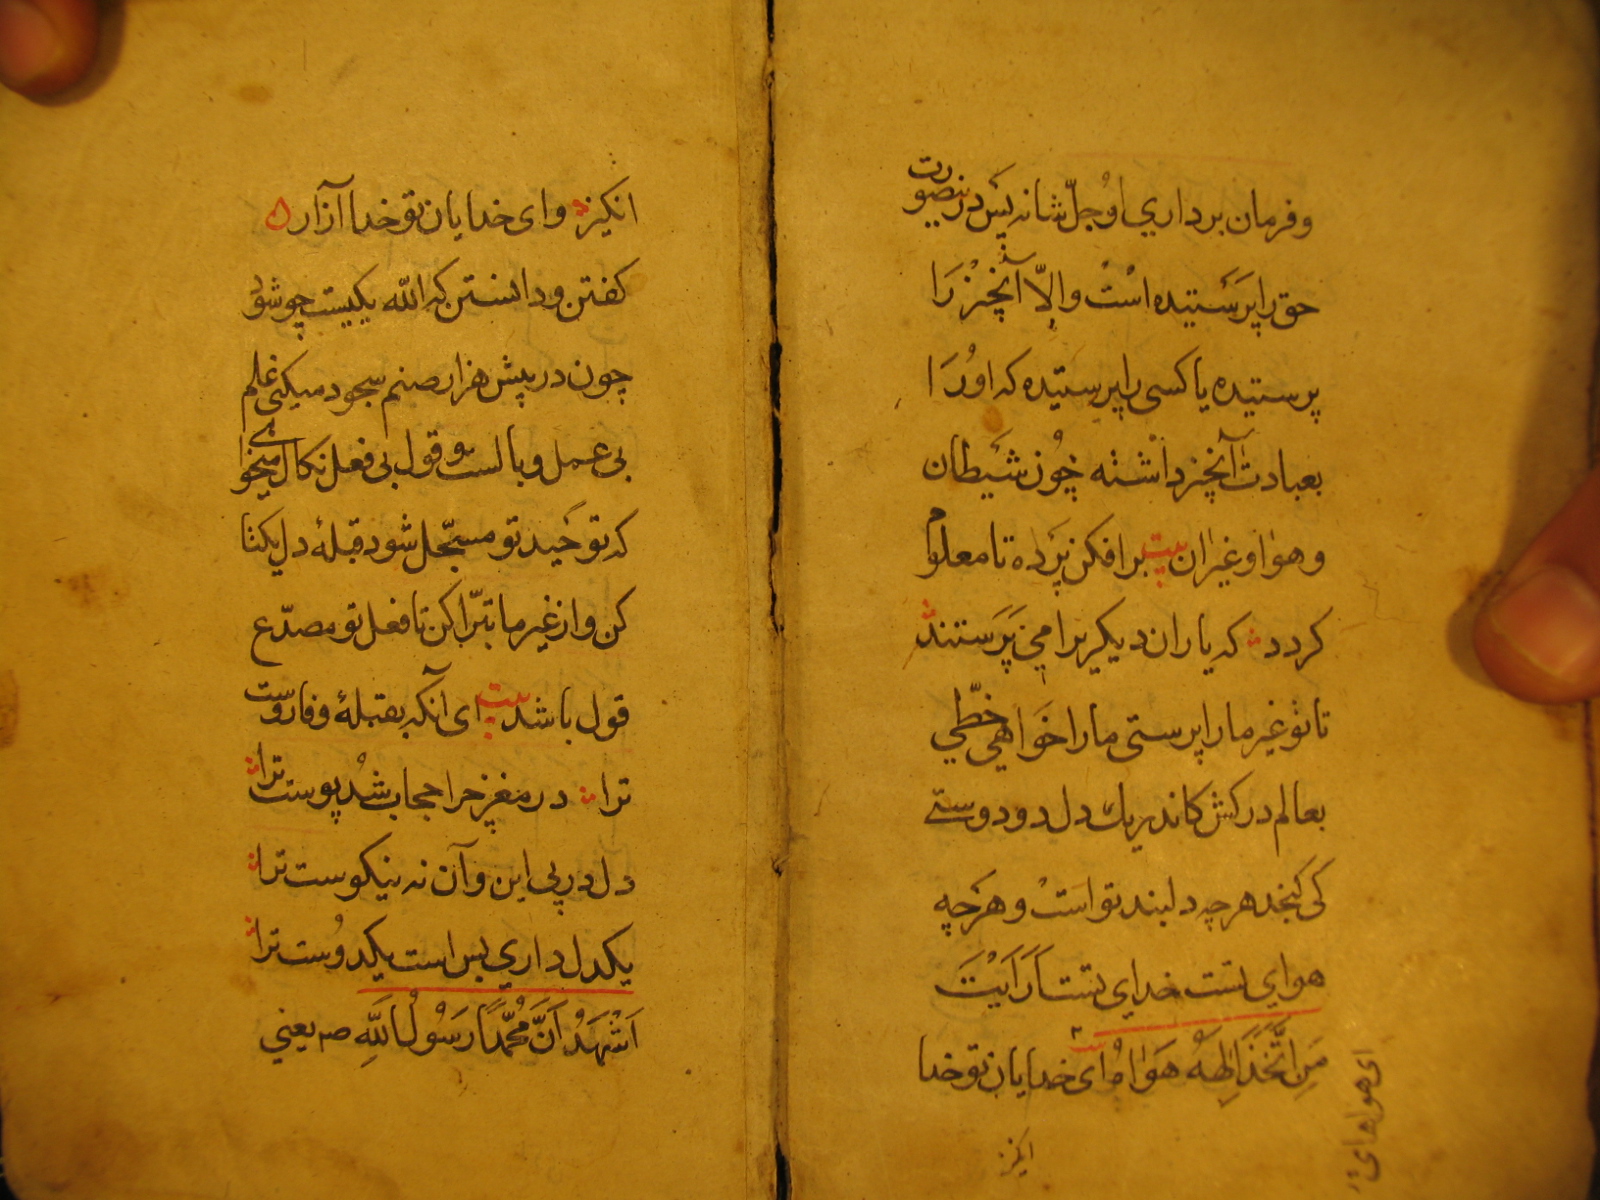 و فرمان برداری او جلّ شانه پس درینصورت
حق را پرستیده است و الّا آنچیز را
پرستیده یا کسی را پرستیده که او را
بعبادت آنچیز داشته چون شیطان
و هوا و غیران بیت برافکن پرده تا معلوم
کردد که یاران دیکری را می پرستند
تا تو غیر ما را پرستی ما را خواهی خطّی
بعالم درکش کاندر یک دل دو دوستی
کی کنجد هر چه دلبند تو است و هر چه
هوای تست خدای تست اَرَاَیْتَ
مَنِ اتَّخَذَ اِلٰهَهُ هَوَاهُ ای خدایان تو خدا
انکیز
ای هواهای
انکیز وای خدایان تو خدا آزار
کفتن و دانستن که الله یکیست چو شود
چون در پیش هزار صنم سجود میکنی علم
بی عمل وبالست و قول بی فعل نکال میخواهی
که توحید تو مسجّل شود قبلهٔ دل یکتا
کن و از غیر ما تبرّا کن تا فعل تو مصدّع
قول باشد بیت ای آنکه بقبلهٔ وفا روست
ترا در مغز چرا حجاب شد پوست ترا
دل در پی این و آن نه نیکوست ترا
یکدل داری بس است یکدوست ترا
اَشْهَدُ اَنَّ مُحَمَّدًا رَسُولُ اللّٰهِ صـ یعنی